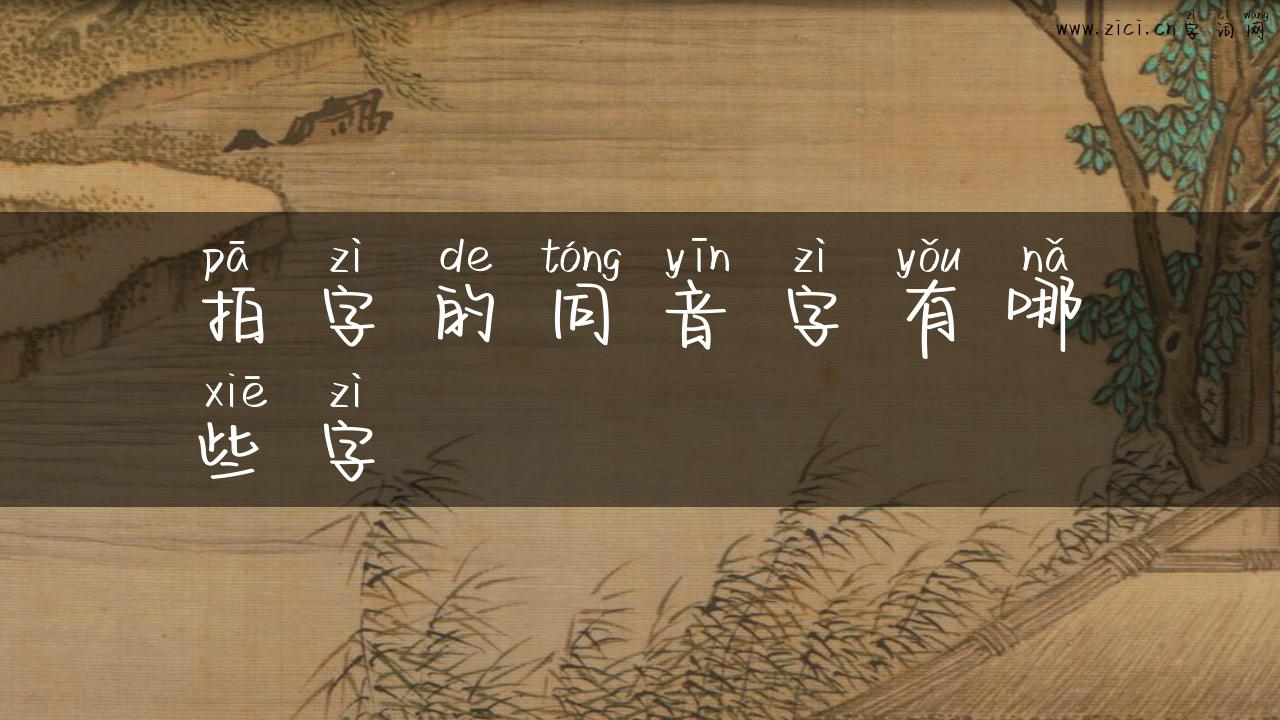 zì cí wǎng
www.zici.cn字词网
pā zì de tóng yīn zì yǒu nǎ
拍字的同音字有哪
xiē zì
些字